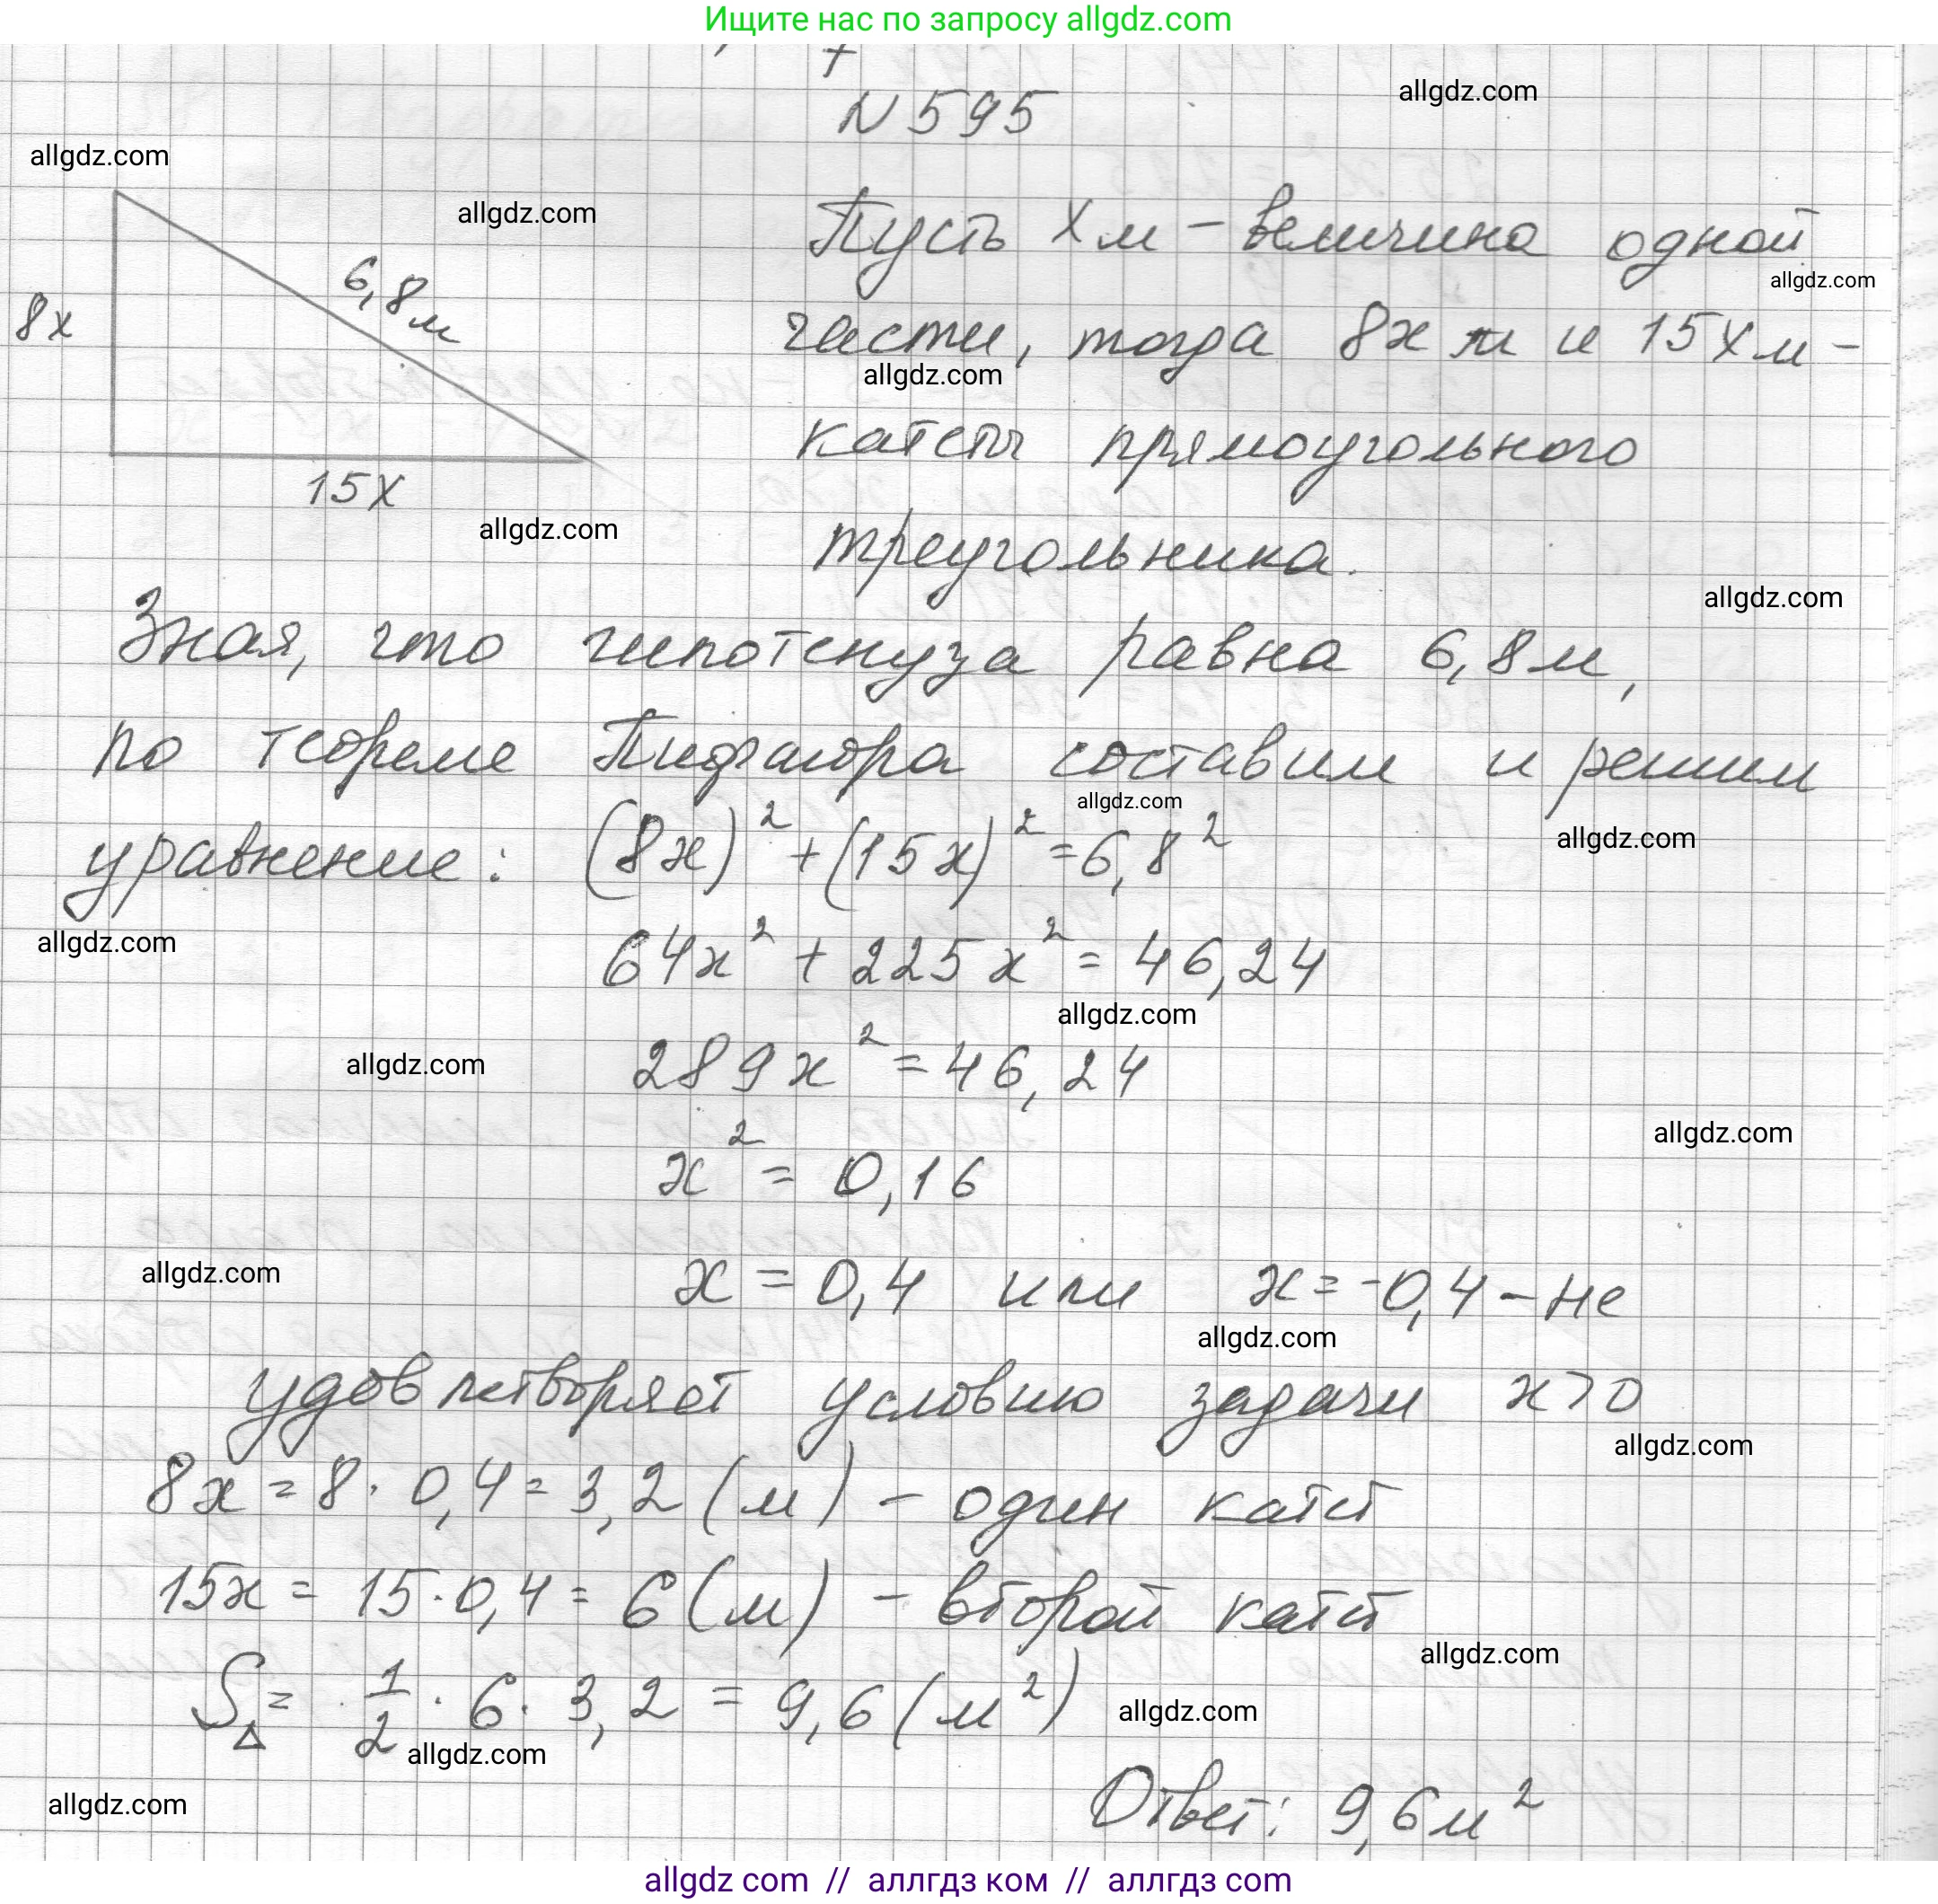 Ищите нас по запросу allgdz.com
N 595
allgdz.com
allgdz.com
allgdz.com
Пусть x м – величина одной
allgdz.com
8x
6,8 м
части, тогда 8x м и 15x м –
allgdz.com
катеты прямоугольного
15x
allgdz.com
треугольника.
allgdz.com
Зная, что гипотенуза равна 6,8 м,
по теореме Пифагора составим и решим
allgdz.com
allgdz.com
уравнение: (8x)² + (15x)² = 6,8²
allgdz.com
64x² + 225x² = 46,24
allgdz.com
allgdz.com
289x² = 46,24
allgdz.com
x² = 0,16
allgdz.com
x = 0,4 или x = -0,4 – не
allgdz.com
удовлетворяет условию задачи x > 0
allgdz.com
8x = 8 · 0,4 = 3,2 (м) – один катет
15x = 15 · 0,4 = 6 (м) – второй катет
allgdz.com
S△ = 1/2 · 6 · 3,2 = 9,6 (м²)
allgdz.com
allgdz.com
allgdz.com
Ответ: 9,6 м²
allgdz com // аллгдз ком // аллгдз com